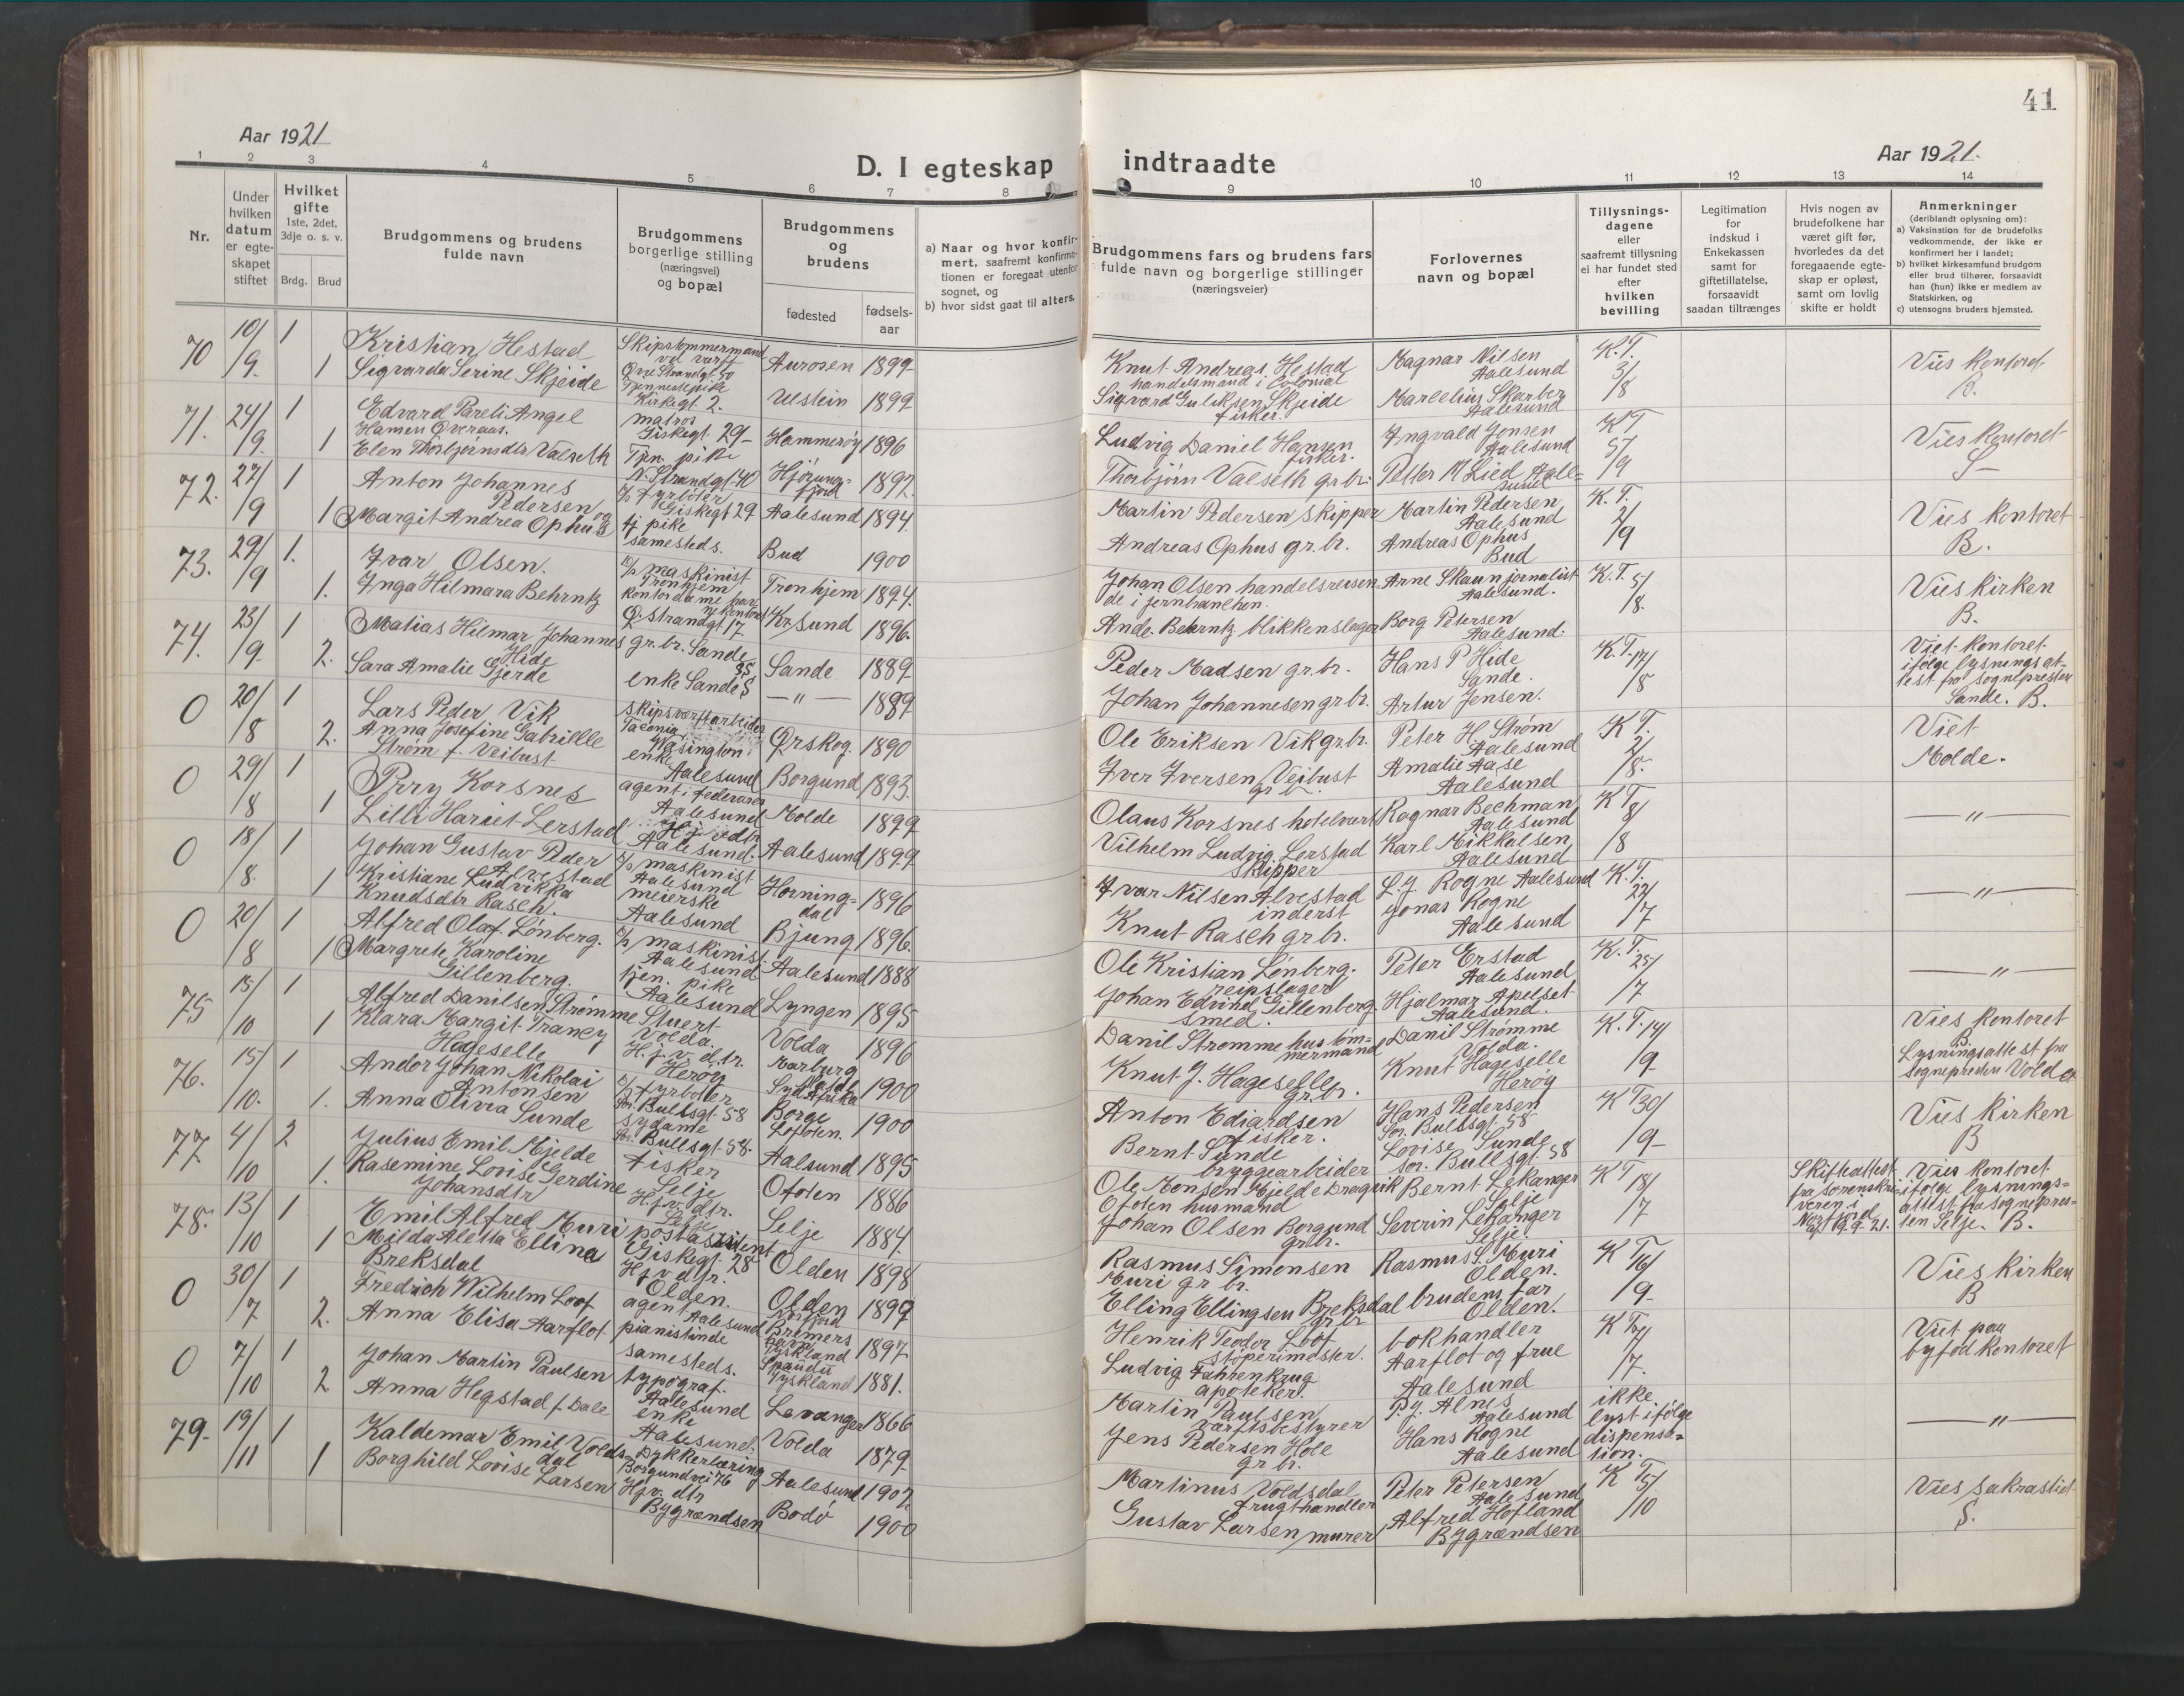 41
Aar 1921
Aar 1921.
D. I egteskap indtraadte
1 2 3 4 5 6 7 8 9 10 11 12 13 14
Nr.
Under hvilken datum er egte-skapet stiftet
Hvilket gifte
1ste, 2det, 3dje o. s. v.
Brdg. Brud
Brudgommens og brudens fulde navn
Brudgommens borgerlige stilling (næringsvei) og bopæl
Brudgommens og brudens
fødested
fødsels-aar
a) Naar og hvor konfir-mert, saafremt konfirma-tionen er foregaat utenfor sognet, og
b) hvor sidst gaat til alters.
Brudgommens fars og brudens fars fulde navn og borgerlige stillinger (næringsveier)
Forlovernes navn og bopæl
Tillysnings-dagene eller saafremt tillysning ei har fundet sted efter hvilken bevilling
Legitimation for indskud i Enkekassen samt for giftetillatelse, forsaavidt saadan tiltrænges
Hvis nogen av brudefolkene har været gift før, hvorledes da det foregaaende egte-skap er opløst, samt om lovlig skifte er holdt
Anmerkninger
(deriblandt oplysning om):
a) Vaksination for de brudefolks vedkommende, der ikke er konfirmert her i landet;
b) hvilket kirkesamfund brudgom eller brud tilhører, forsaavidt han (hun) ikke er medlem av Statskirken, og
c) utensogns bruders hjemsted.
70 10/9. 1 Kristian Hestad Skipstømmermand ved værft Øvre Strandgt. 50 Aurosen 1899 Knut Andreas Hestad handelsmand i Colonial Magnar Nilsen Aalesund K.T. 3/8 Vies kontoret
1 Sigvarda Serine Skjeide Tjenestepike Kirkegt 2. Ulstein 1899 Sigvard Guliksen Skjeide fisker. Marcelius Skarbø Aalesund B.
71. 24/9. 1 Edvard Pareli Angel Hansen Øveraas. matros Giskegt. 29 Hammerøy 1896 Ludvig Daniel Hansen fisker. Ingvald Jonsen Aalesund KT 5/9 Vies kontoret
1 Elen Thorbjørnsdtr Valseth Tjen. pike N. Strandgt 40 Hjørungfjord 1892. Thorbjørn Valseth gr.br. Petter M Lied Aalesund S
72. 27/9 1 Anton Johannes Pedersen fyrbøter Giskegt 29 Aalesund 1894. Martin Pedersen skipper Martin Pedersen Aalesund K.T. 2/9 Vies kontoret
1 Margit Andrea Ophus tj pike samesteds. Bud 1900 Andreas Ophus gr.br. Andreas Ophus Bud B.
73. 29/9 1. Ivar Olsen. maskinist Tronhjem Tronhjem 1894. Johan Olsen handelsreisende i jernbranchen. Arne Skaun jornalist Aalesund. K.T. 5/8. Vies kirken
1. Inga Hilmara Behrntz kontordame Ø. Strandgt 17 Kr.sund 1896. Ande. Behrntz blikkenslager Borg Petersen Aalesund. B.
74. 23/9. 1 Matias Hilmar Johannes Hide gr.br. Sande Sande 1889. Peder Madsen gr.br. Hans P Hide Sande. K.T. 14/8 Viet kontoret ifølge lysningsattest fra sognepresten Sande. B.
2. Sara Amalie Gjerde enke Sande — " — 1889. Johan Johannesen gr.br. Artur Jensen.
0 20/8 1 Lars Peder Vik skipsværftarbeider Tacoma Wasington Ørskog. 1890 Ole Eriksen Vik gr.br. Peter H Strøm Aalesund K.T. 2/8. Viet Molde.
2. Anna Josefine Gabrielle Strøm f. Veibust enke Aalesund Borgund 1893. Iver Iversen Veibust gr.br. Amalie Aase Aalesund
0 29/8 1 Perry Korsnes agent i federaren Aalesund Molde 1899 Olaus Korsnes hotelvært Ragnar Bechman Aalesund KT 8/8 — " —
1 Lilli Hariet Lerstad Hj. v. dtr. Aalesund. Aalesund 1899 Vilhelm Ludvig Lerstad skipper Karl Mikkalsen Aalesund
0 18/8. 1 Johan Gustav Peder Alvestad maskinist Aalesund Horningdal 1896 Ivar Nilsen Alvestad inderst L.J. Rogne Aalesund K.T. 22/7 — " —
1 Kristiane Ludvikka Knudsdtr Rasch. meierske Aalesund Bjung 1896. Knut Rasch gr.br. Jonas Rogne Aalesund
0 20/8 1 Alfred Olaf Lønberg. maskinist Aalesund Aalesund 1888 Ole Kristian Lønberg. reipslager Peter Erstad Aalesund K.T. 25/7 — " —
1 Margrete Karoline Gillenberg. tjen. pike Aalesund Lyngen 1895 Johan Edvind Gillenberg. smed. Hjalmar Apelset Aalesund.
75 15/10 1 Alfred Danilsen Strømme Stuert Volda. Volda 1896 Danil Strømme hustømmermand Danil Strømme Volda. K.T. 14/9. Vies kontoret B. Lysningsattest fra sognepresten Volda
1 Klara Margit Trancy Hageselle H.j.v.dtr. Herøy Marburg Natal Syd Afrika 1900 Knut J. Hageselle gr.br. Knut Hageselle Herøy
76. 15/10. 1 Andor Johan Nikolai Antonsen fyrbøter Sør. Bullsgt. 58 Borge Lofoten. 1900 Anton Ediardsen fisker. Hans Pedersen Sør. Bullsgt. 58 KT 30/9 Vies kirken
1. Anna Olivia Sunde sydame Sør. Bullsgt. 58. Aalsund 1895 Bernt Sunde bryggearbeider Lovise Sunde Sør. Bullsgt. 58 B
77. 4/10 2 Julius Emil Mjelde fisker Selje Ofoten 1886 Ole Monsen Mjelde Dragvik Ofoten husmand Bernt Lekanger Selje KT 18/7 Skifteattest fra sorenskriveren i Nordfjord af 19.9.21. Vies kontoret ifølge lysningsattest fra sognepresten Selje. B.
1. Rasemine Lovise Gerdine Johansdtr H.j.v.dtr. Selje Selje 1884. Johan Olsen Borgund gr.br. Severin Lekanger Selje.
78. 13/10 1 Emil Alfred Muri postassistent Giskegt. 28 Olden 1898 Rasmus Simonsen Muri gr.br. Rasmus S. Muri Olden. KT 16/9. Vies kirken
1 Milda Aletta Ellina Breksdal Hj.v.dtr. Olden. Olden Norfjord 1899 Elling Ellingsen Breksdal gr.br. brudens far Olden. B
0 30/7 1 Fredrich Wilhelm Loof agent Aalesund Bremershavn Tyskland 1897 Henrik Teodor Loof støperimester. bokhandler Aarflot og frue Aalesund KT /7. Viet paa byfodkontoret
2. Anna Elisa Aarflot pianistinde samesteds. Spandu Tyskland 1881. Ludvig Fahrenkrug apoteker.
0 7/10 1 Johan Martin Paulsen typograf. Aalesund Levanger 1866 Martin Paulsen værftsbestyrer P.J. Alnes Aalesund ikke lyst ifølge dispensasion. — " —
2. Anna Hegstad f. Dale enke Aalesund. Volda 1879 Jens Pedersen Hole gr.br. Hans Rogne Aalesund
79. 19/11 1 Kaldemar Emil Voldsdal Dykkerlæring Borgundvei 76 Aalesund 1902. Martinus Voldsdal frugthandler Peter Petersen Aalesund KT 5/10 Vies sakrastiet
1 Borghild Lovise Larsen Hjv. dtr Bygrændsen Bodø 1900 Gustav Larsen murer Alfred Hofland Bygrændsen S.